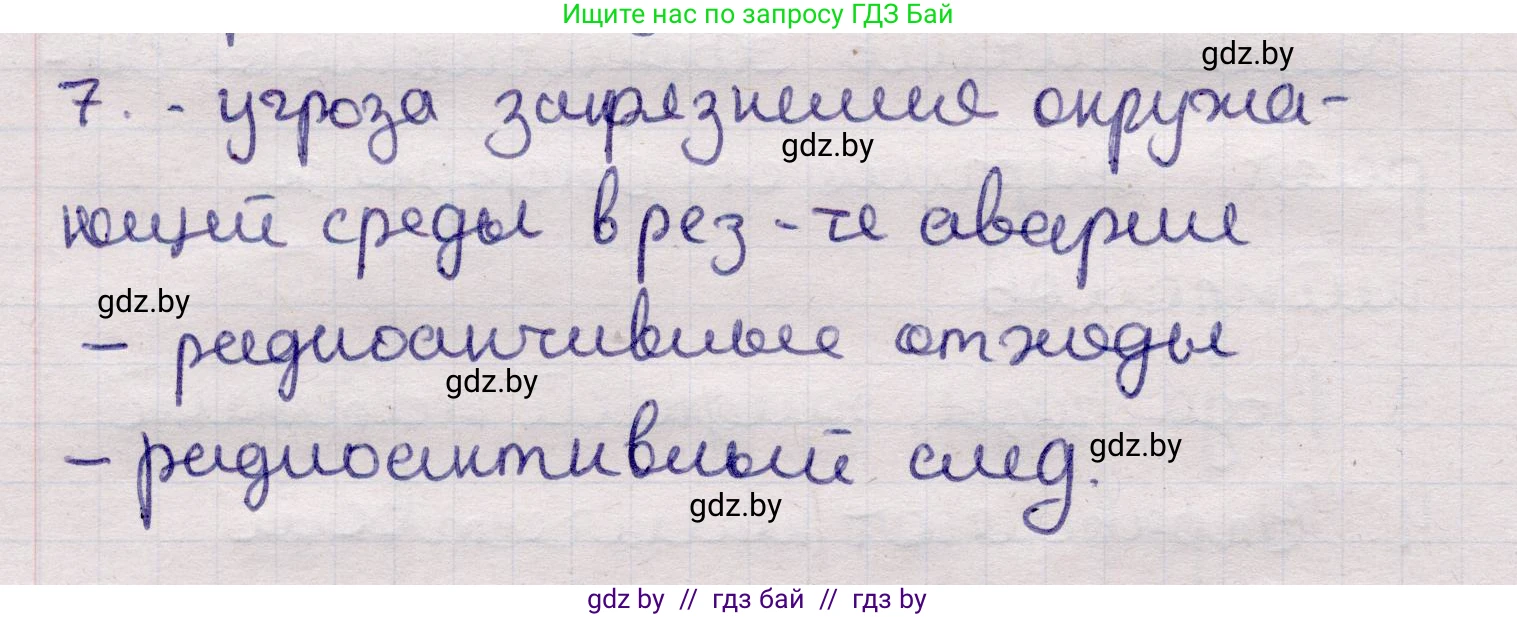 Ищите нас по запросу ГДЗ Бай
gdz.by
7. - угроза загрязнения окружа-
gdz.by
ющей среды в рез-те аварии
gdz.by
– радиоактивные отходы
gdz.by
– радиоактивный след.
gdz.by
gdz.by
gdz by // гдз бай // гдз by